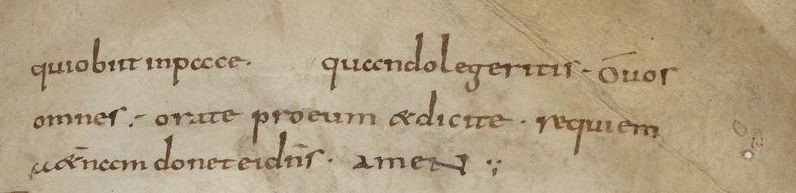 quiobiit inpace. quandolegeritis. Ōuos
omnes. orate proeum ædicite. requiem
aæt̄nam doneteidn̄s. AMEN